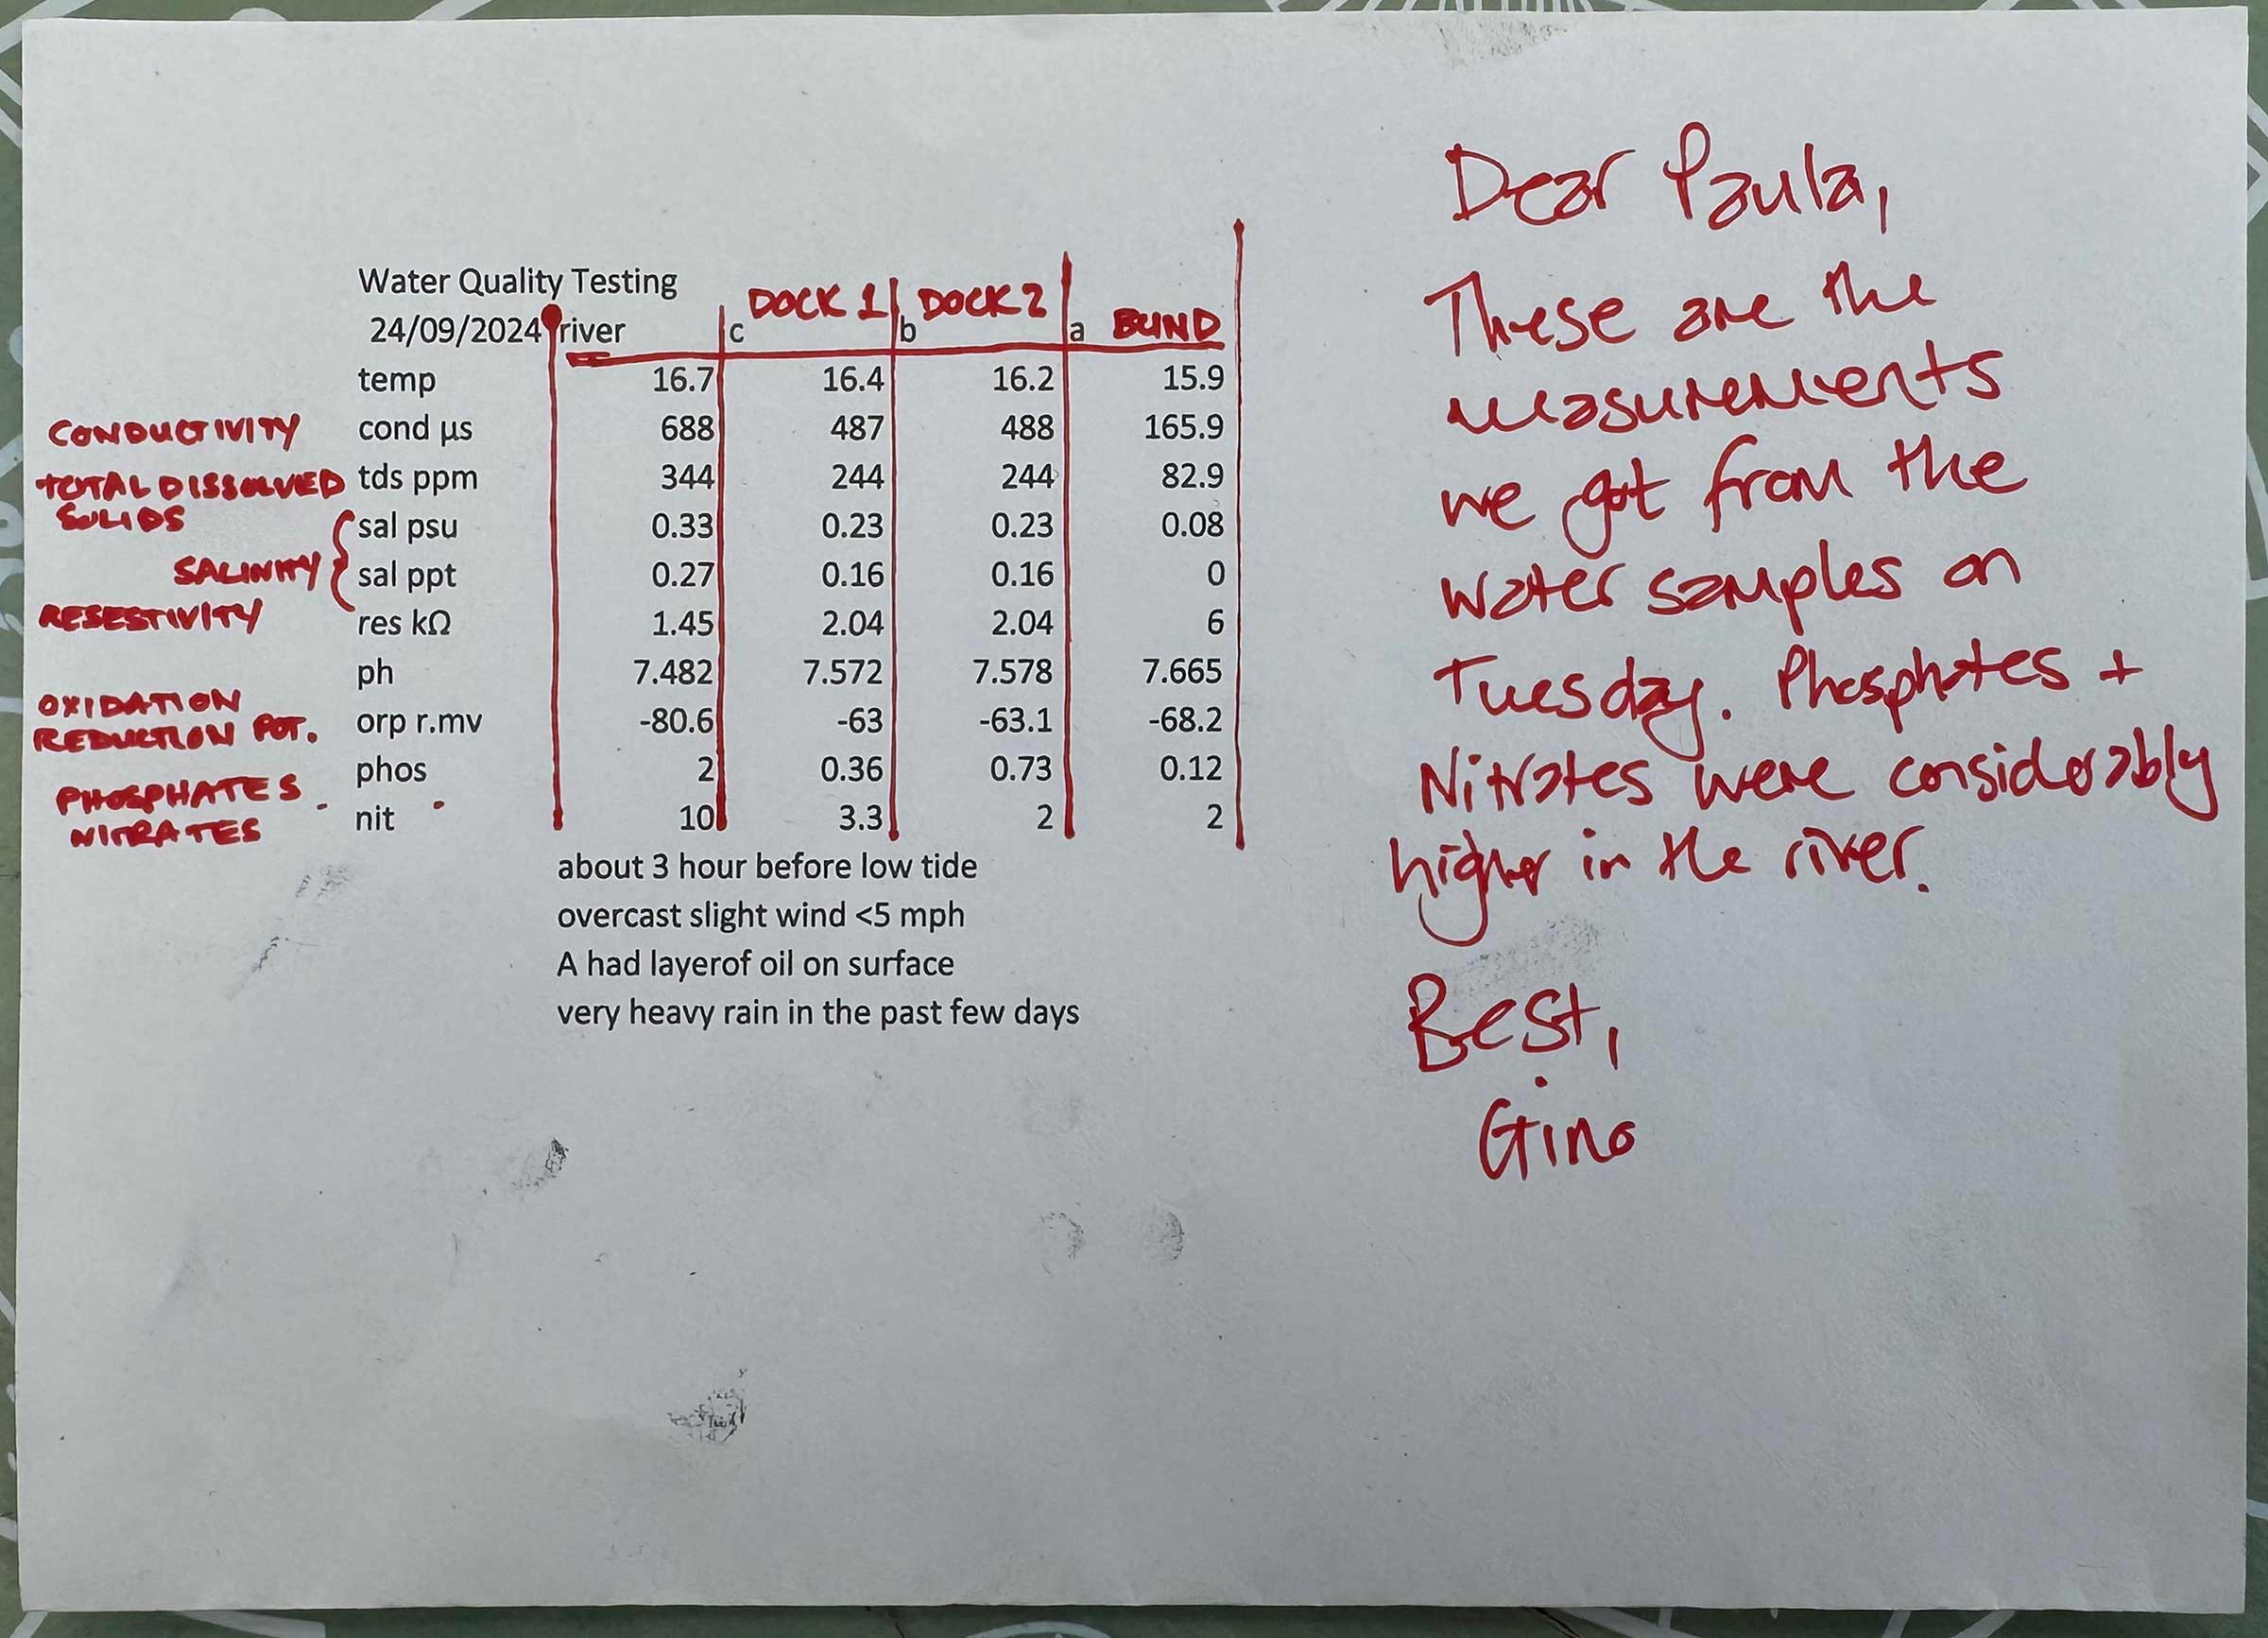 Water Quality Testing
24/09/2024 river c DOCK 1 b DOCK 2 a BLIND
temp 16.7 16.4 16.2 15.9
CONDUCTIVITY cond µs 688 487 488 165.9
TOTAL DISSOLVED tds ppm 344 244 244 82.9
SOLIDS
sal psu 0.33 0.23 0.23 0.08
SALINITY sal ppt 0.27 0.16 0.16 0
RESESTIVITY res kΩ 1.45 2.04 2.04 6
ph 7.482 7.572 7.578 7.665
OXIDATION
REDUCTION POT. orp r.mv -80.6 -63 -63.1 -68.2
PHOSPHATES phos 2 0.36 0.73 0.12
NITRATES nit 10 3.3 2 2
about 3 hour before low tide
overcast slight wind <5 mph
A had layerof oil on surface
very heavy rain in the past few days
Dear Paula,
These are the
measurements
we got from the
water samples on
Tuesday. Phosphates +
Nitrates were considerably
higher in the river.
Best,
Gino